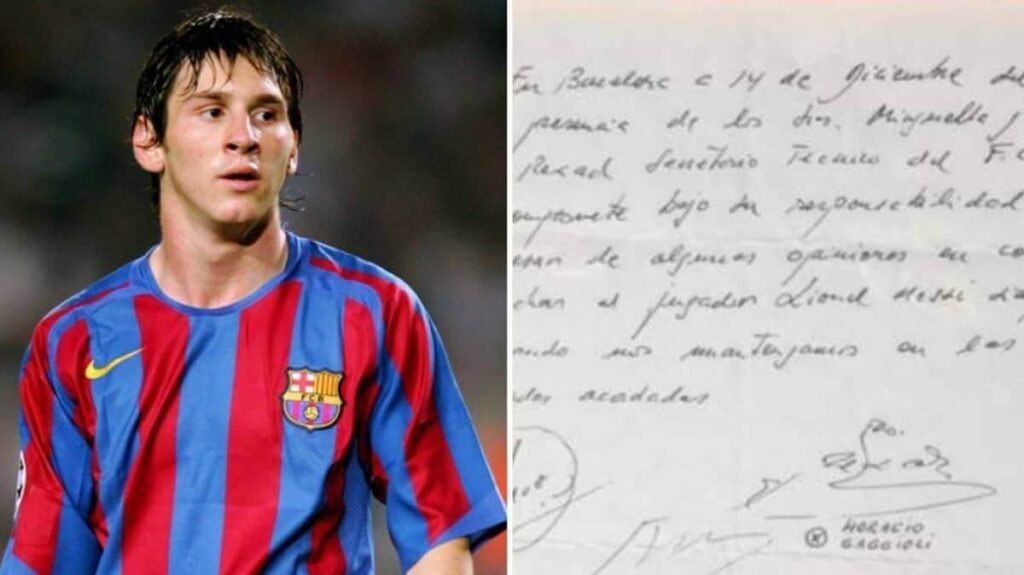 FCB
En Barcelona a 14 de Diciembre del
presencia de los Srs. Minguella y
Rexach Secretario Tecnico del F.C
bajo su responsabilidad
de algunas opiniones en co
al jugador Lionel Messi
nos mantengamos en las
acordadas
HORACIO
GAGGIOLI